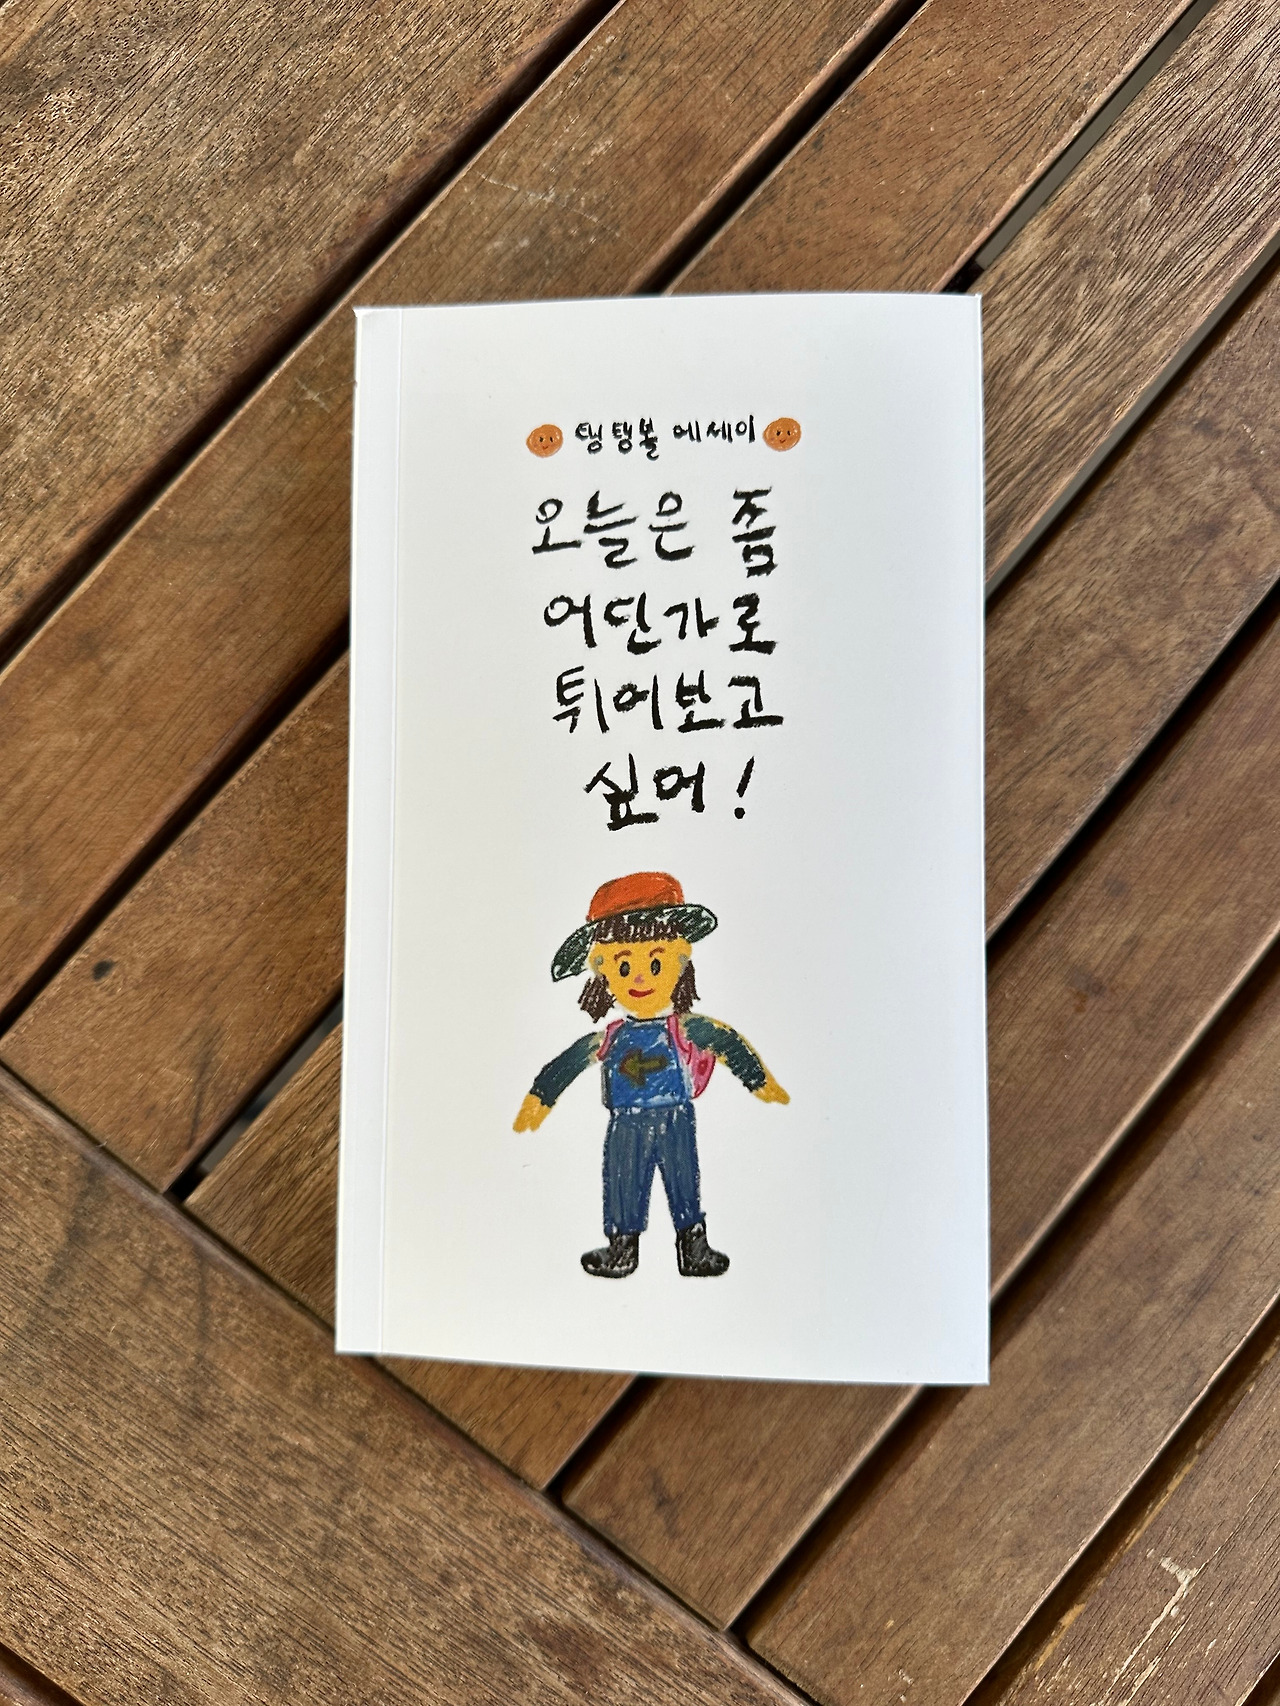 탱탱볼 에세이
오늘은 좀
어딘가로
튀어보고
싶어!